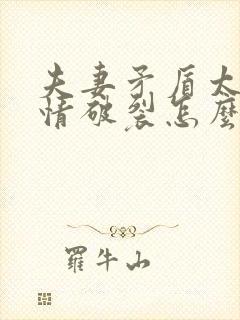 夫妻矛盾太
情破裂怎麼
羅牛山